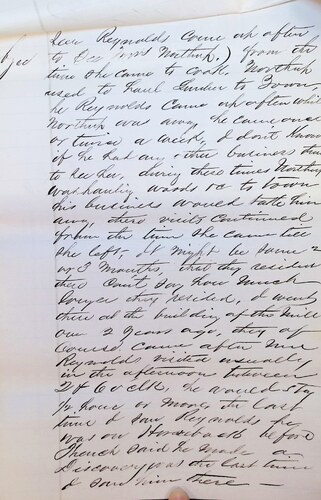 saw Reynolds come up often
to see Mrs Northup.) from the
time she came to cook, Northup
used to haul lumber to Town,
he Reynolds came up often while
Northup was away, he came once
or twice a week, I don't know
if he had any other business than
to see her, during these times Northup
was hauling woods &c to town
his business would take him
away, these visits continued
from the time she came till
she left, it might be some 2
or 3 months, that they resided
there Cant say how much
longer they resided, I went
there at the building of the mill
over 2 years ago, they of
course came after me
Reynolds visited usually
in the afternoon between
2 & 6 oclk, he would stay
1/2 hour or more, the last
time I saw Reynolds he
was on Horseback before
French said he made a
Discovery was the last time
I saw him there —